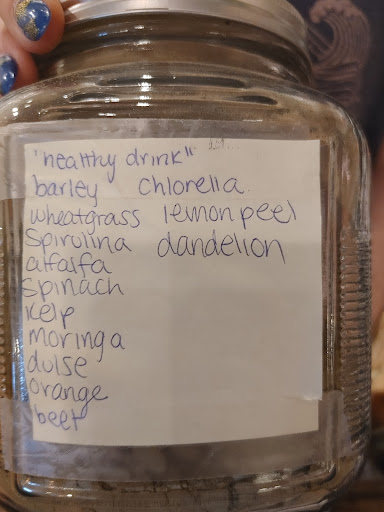 "healthy drink"
barley chlorella
wheatgrass lemon peel
spirulina dandelion
alfalfa
spinach
kelp
moringa
dulse
orange
beet